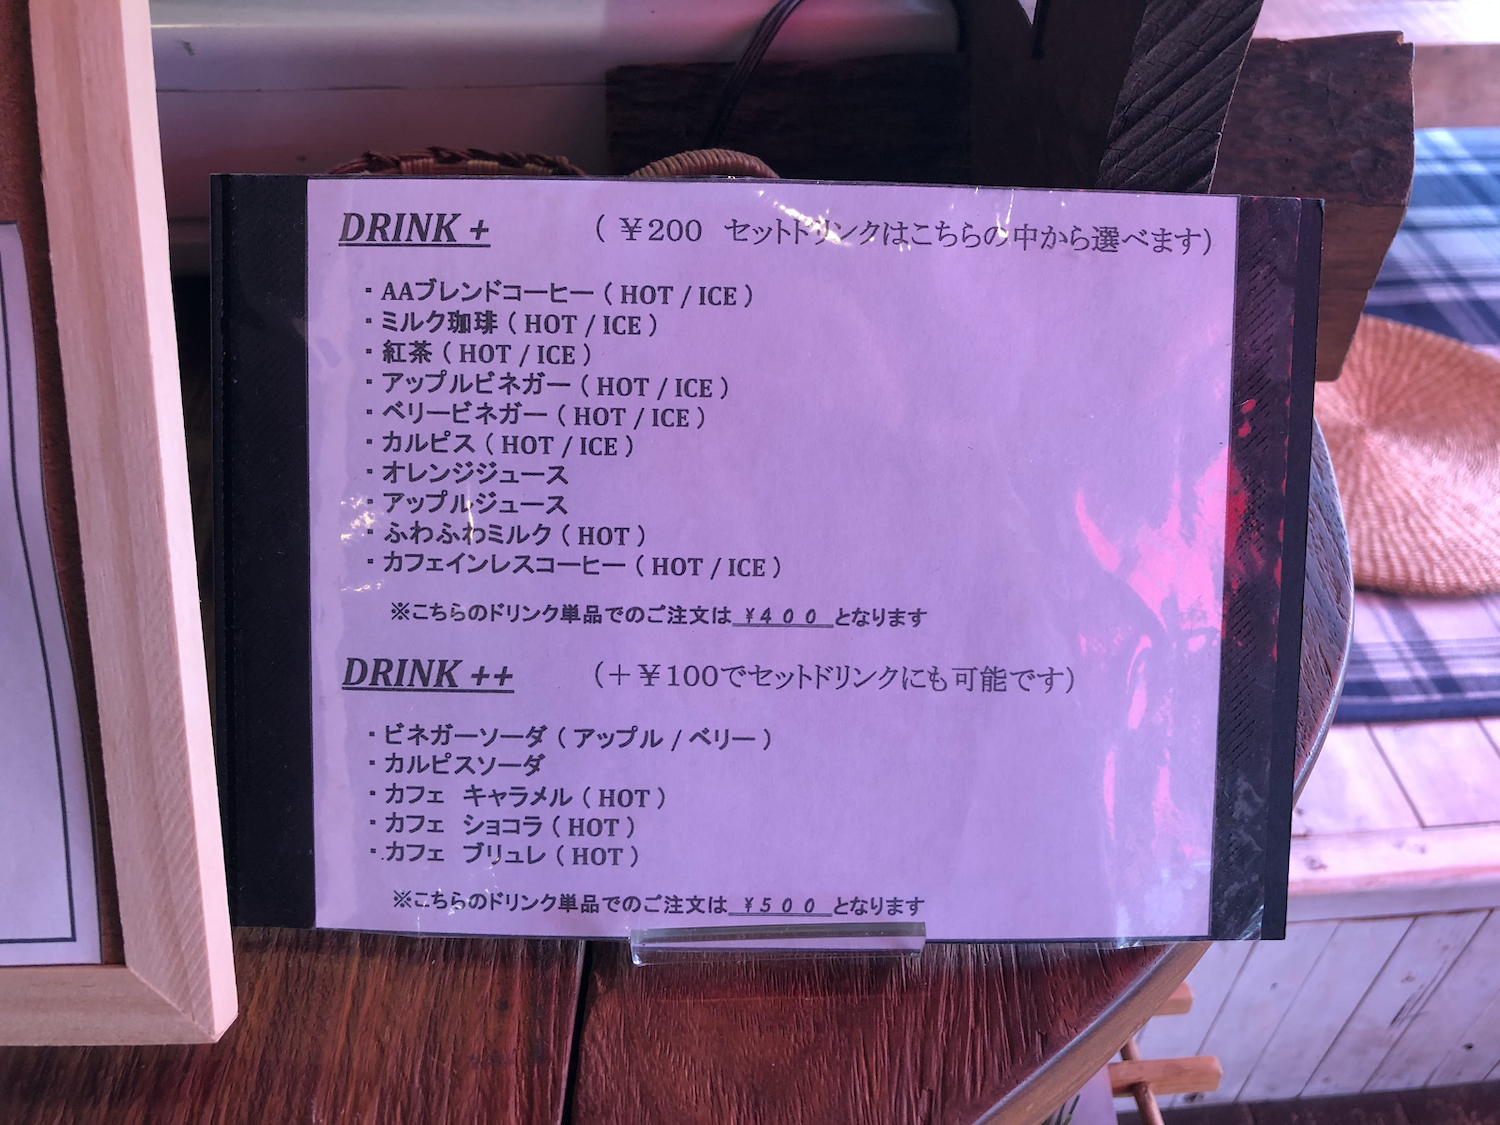 DRINK +　（ ￥200　セットドリンクはこちらの中から選べます）
・AAブレンドコーヒー（ HOT / ICE ）
・ミルク珈琲（ HOT / ICE ）
・紅茶（ HOT / ICE ）
・アップルビネガー（ HOT / ICE ）
・ベリービネガー（ HOT / ICE ）
・カルピス（ HOT / ICE ）
・オレンジジュース
・アップルジュース
・ふわふわミルク（ HOT ）
・カフェインレスコーヒー（ HOT / ICE ）
※こちらのドリンク単品でのご注文は ￥４００ となります
DRINK ++　（＋￥100でセットドリンクにも可能です）
・ビネガーソーダ（ アップル / ベリー ）
・カルピスソーダ
・カフェ　キャラメル（ HOT ）
・カフェ　ショコラ（ HOT ）
・カフェ　ブリュレ（ HOT ）
※こちらのドリンク単品でのご注文は ￥５００ となります